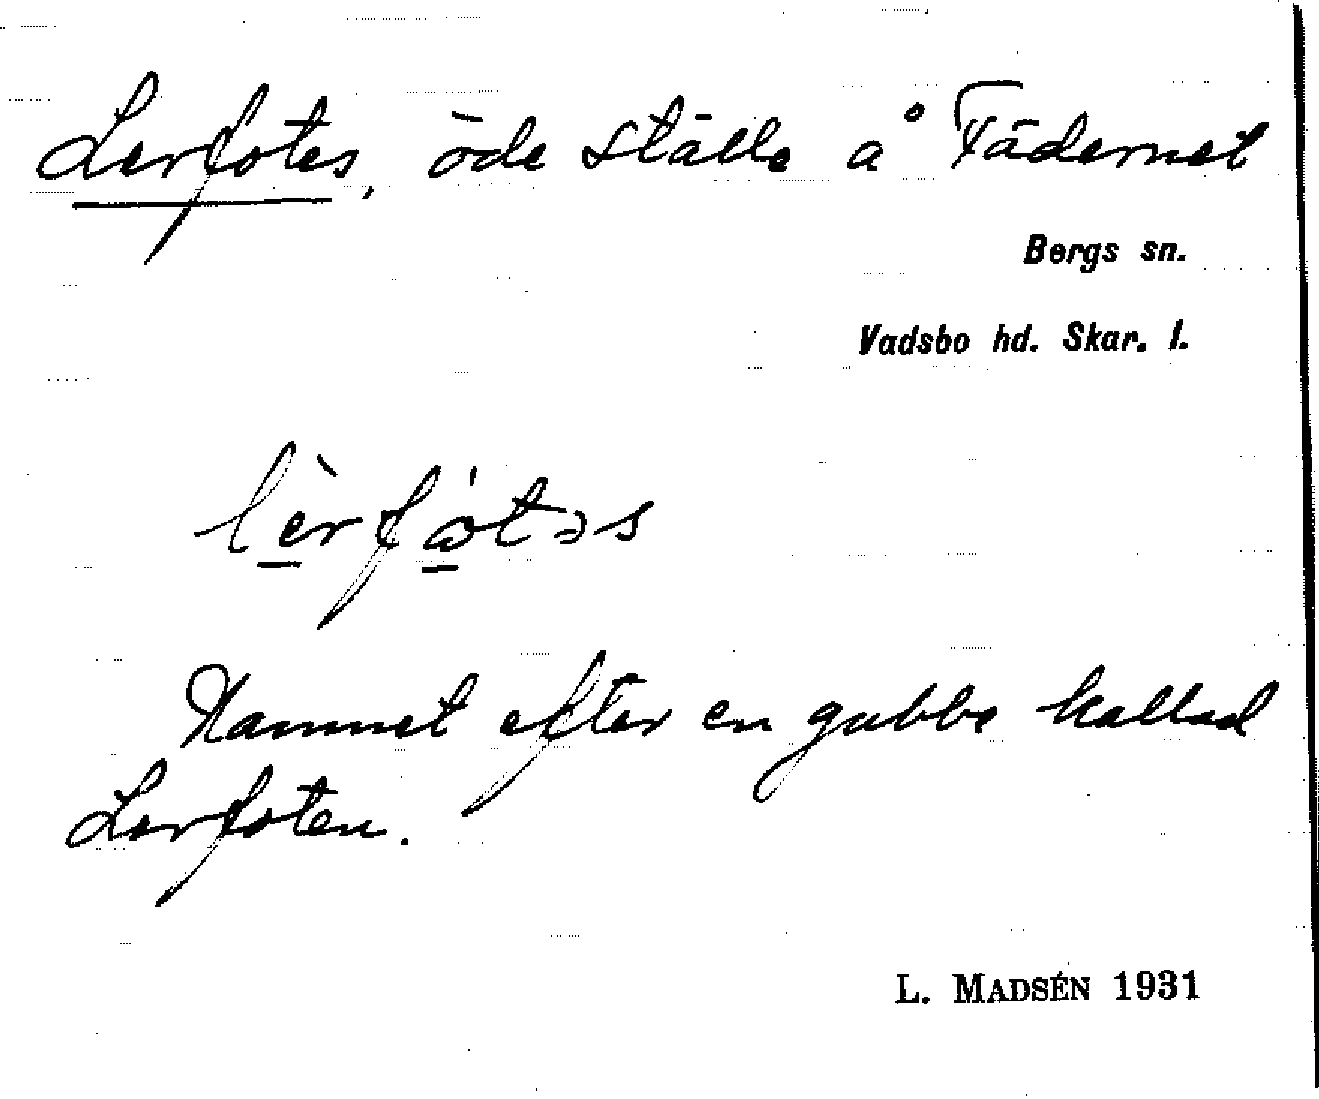 Lerfotes, öde ställe å Fädernet
Bergs sn.
Vadsbo hd. Skar. l.
Namnet efter en gubbe kallad
Lerfoten.
L. MADSÉN 1931